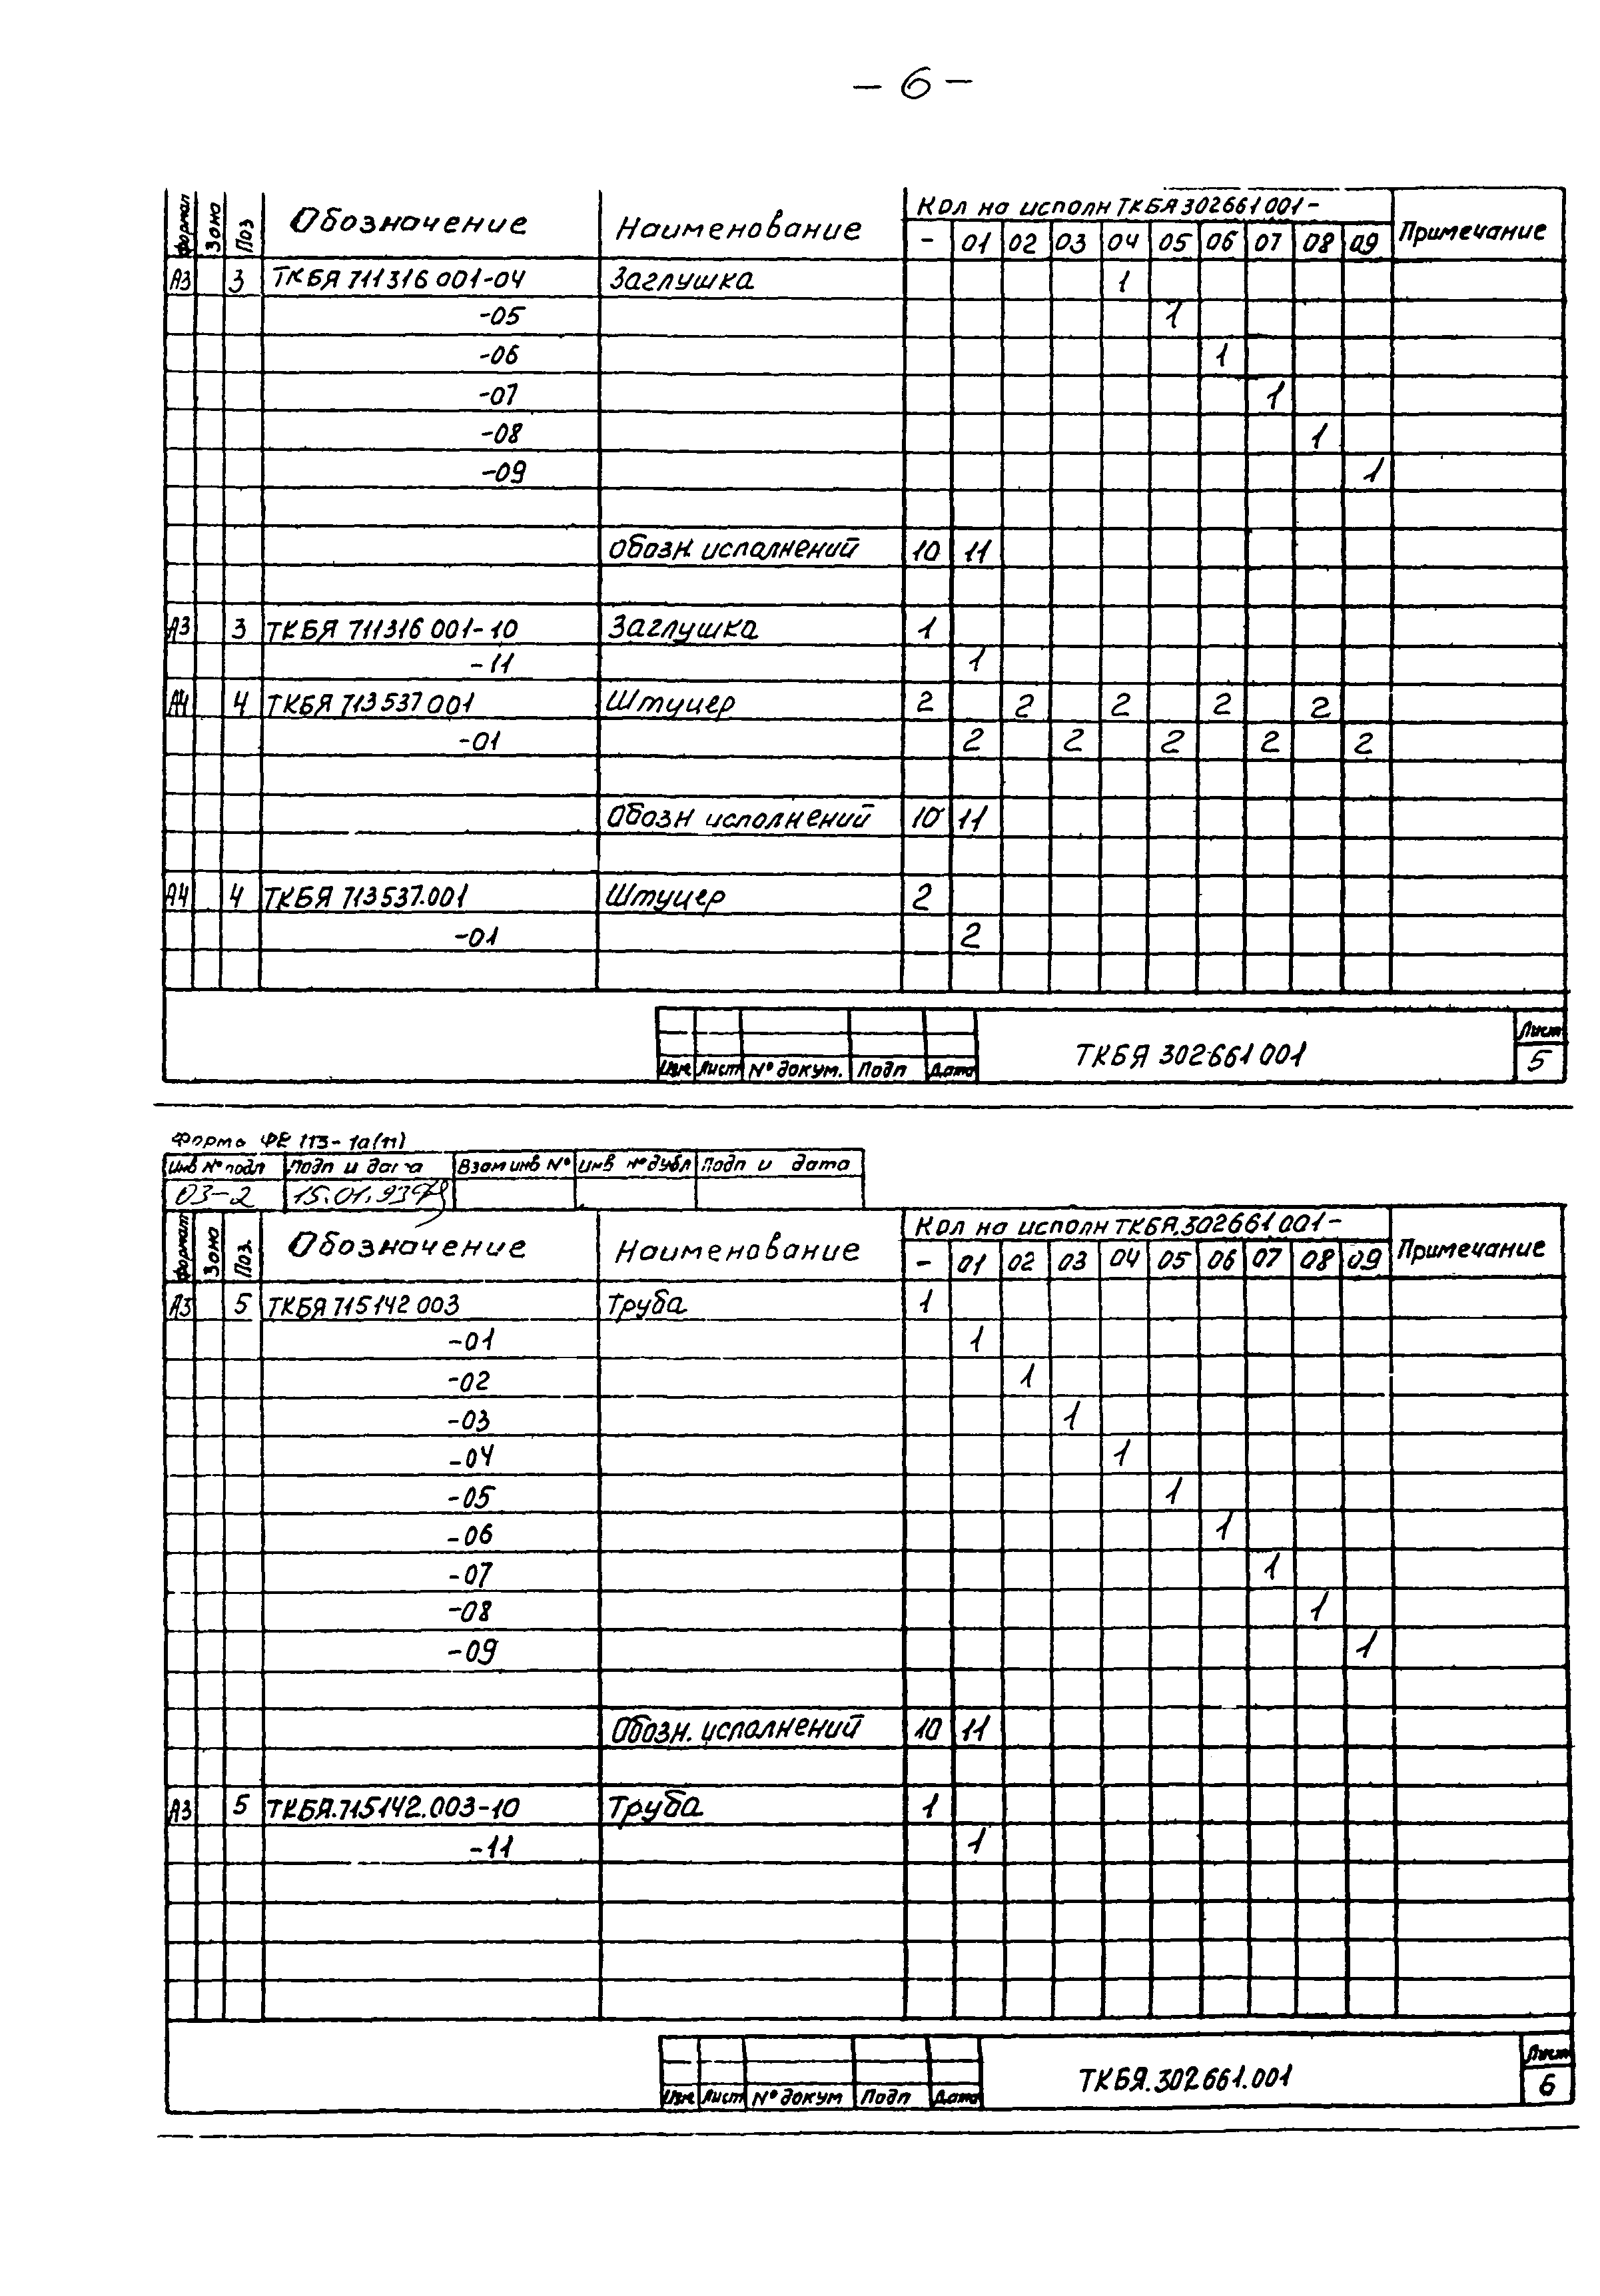 - 6 -
Формат Зона Поз Обозначение Наименование Кол на исполн ТКБЯ 302661 001- Примечание
- 01 02 03 04 05 06 07 08 09
А3 3 ТКБЯ 711316 001-04 Заглушка 1
-05 1
-06 1
-07 1
-08 1
-09 1
Обозн. исполнений 10 11
А3 3 ТКБЯ 711316 001-10 Заглушка 1
-11 1
А4 4 ТКБЯ 713537 001 Штуцер 2 2 2 2 2
-01 2 2 2 2 2
Обозн исполнений 10 11
А4 4 ТКБЯ 713537.001 Штуцер 2
-01 2
Изм Лист № докум. Подп Дата ТКБЯ 302661 001 Лист 5
Форма ФЕ 113-1а(11)
Инв № подл Подп и дата Взам инв № Инв № дубл Подп и дата
03-2 15.01.93
Формат Зона Поз. Обозначение Наименование Кол на исполн ТКБЯ.302661 001- Примечание
- 01 02 03 04 05 06 07 08 09
А3 5 ТКБЯ 715142 003 Труба 1
-01 1
-02 1
-03 1
-04 1
-05 1
-06 1
-07 1
-08 1
-09 1
Обозн. исполнений 10 11
А3 5 ТКБЯ.715142.003-10 Труба 1
-11 1
Изм Лист № докум Подп Дата ТКБЯ.302661.001 Лист 6